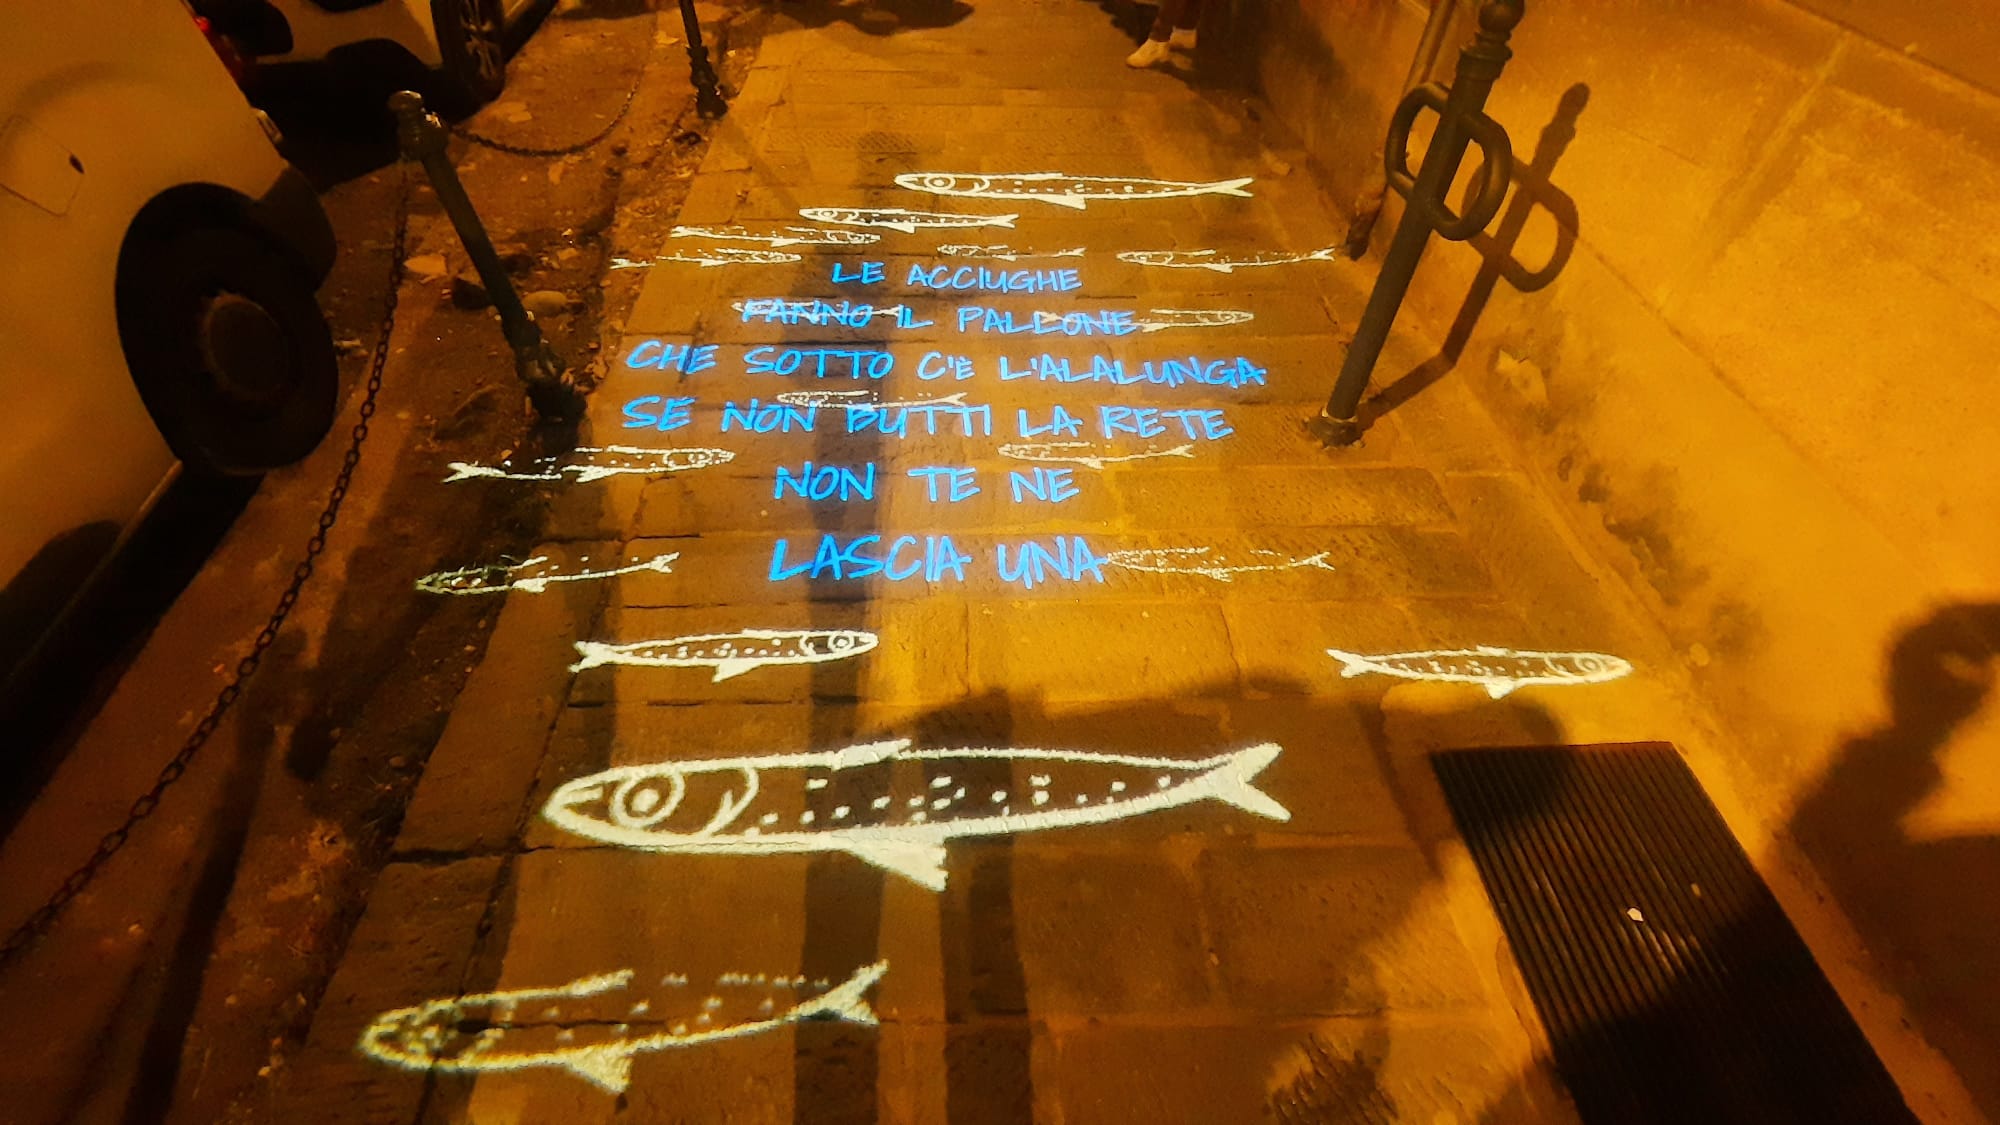 LE ACCIUGHE
FANNO IL PALLONE
CHE SOTTO C'È L'ALALUNGA
SE NON BUTTI LA RETE
NON TE NE
LASCIA UNA